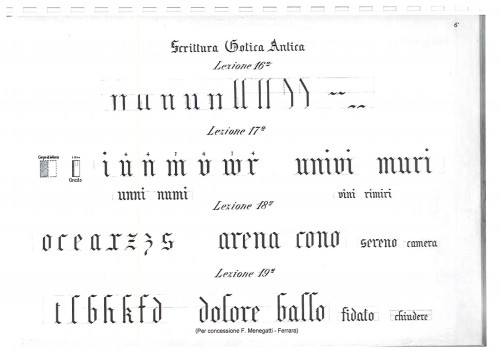 6ª
Scrittura Gotica Antica
Lezione 16ª
n u n u n
Lezione 17ª
i u n m v w r univi muri
unni numi vini rimiri
Lezione 18ª
o c e a x z z s arena cono sereno camera
Lezione 19ª
t l b h k f d dolore ballo fidato chiudere
(Per concessione F. Menegatti - Ferrara)